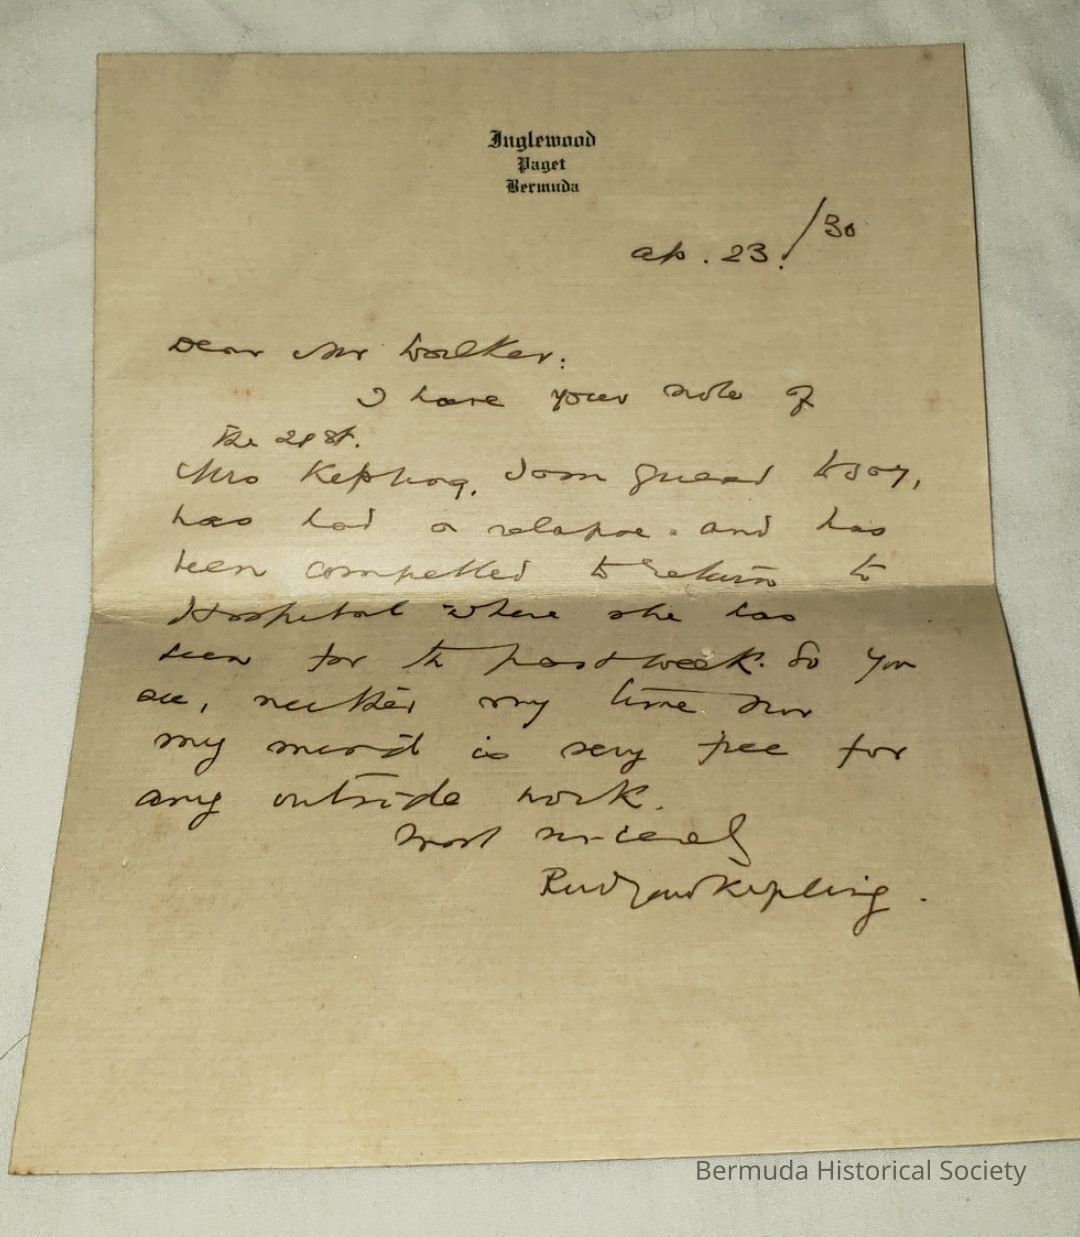 Inglewood
Paget
Bermuda
Ap. 23./30
Dear Mr Walker:
I have your note of
the 21st.
Mrs Kipling, I am grieved to say,
has had a relapse and has
been compelled to return to
Hospital where she has
been for the past week. So you
see, neither my time nor
my mind is very free for
any outside work.
Most sincerely
Rudyard Kipling.
Bermuda Historical Society